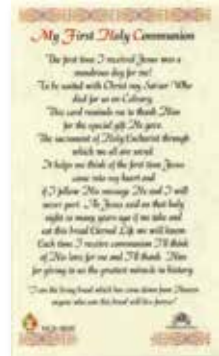 My First Holy Communion
The first time I received Jesus was a
wondrous day for me!
To be united with Christ my Savior Who
died for us on Calvary.
This card reminds me to thank Him
for the special gift He gave.
The sacrament of Holy Eucharist through
which we all are saved.
It helps me think of the first time Jesus
came into my heart and
if I follow His message He and I will
never part. As Jesus said on that holy
night so many years ago if we take and
eat this bread Eternal Life we will know.
Each time I receive communion I'll think
of His love for me and I'll thank Him
for giving to us the greatest miracle in history.
"I am the living bread which has come down from Heaven
anyone who eats this bread will live forever"